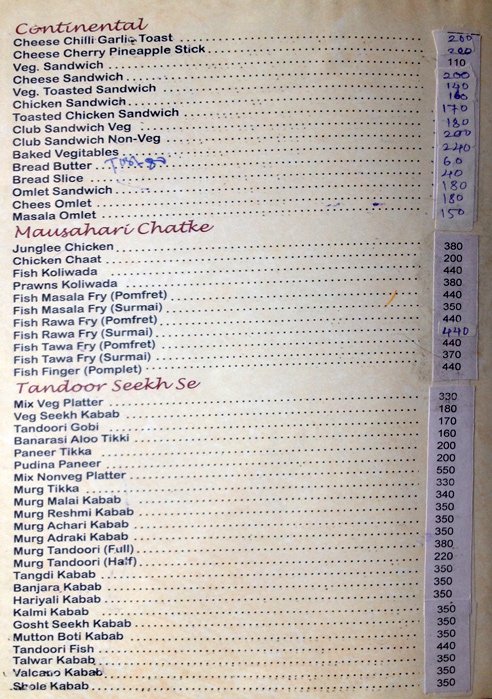 Continental
Cheese Chilli Garlic Toast 200
Cheese Cherry Pineapple Stick 200
Veg. Sandwich 110
Cheese Sandwich 200
Veg. Toasted Sandwich 140
Chicken Sandwich 160
Toasted Chicken Sandwich 170
Club Sandwich Veg 180
Club Sandwich Non-Veg 200
Baked Vegitables 240
Bread Butter 60
Bread Slice 40
Omlet Sandwich 180
Chees Omlet 180
Masala Omlet 150
Mausahari Chatke
Junglee Chicken 380
Chicken Chaat 200
Fish Koliwada 440
Prawns Koliwada 380
Fish Masala Fry (Pomfret) 440
Fish Masala Fry (Surmai) 350
Fish Rawa Fry (Pomfret) 440
Fish Rawa Fry (Surmai) 440
Fish Tawa Fry (Pomfret) 440
Fish Tawa Fry (Surmai) 370
Fish Finger (Pomplet) 440
Tandoor Seekh Se
Mix Veg Platter 330
Veg Seekh Kabab 180
Tandoori Gobi 170
Banarasi Aloo Tikki 160
Paneer Tikka 200
Pudina Paneer 200
Mix Nonveg Platter 550
Murg Tikka 330
Murg Malai Kabab 340
Murg Reshmi Kabab 350
Murg Achari Kabab 350
Murg Adraki Kabab 350
Murg Tandoori (Full) 380
Murg Tandoori (Half) 220
Tangdi Kabab 350
Banjara Kabab 350
Hariyali Kabab 350
Kalmi Kabab 350
Gosht Seekh Kabab 350
Mutton Boti Kabab 350
Tandoori Fish 440
Talwar Kabab 350
Valcano Kabab 350
Shole Kabab 350